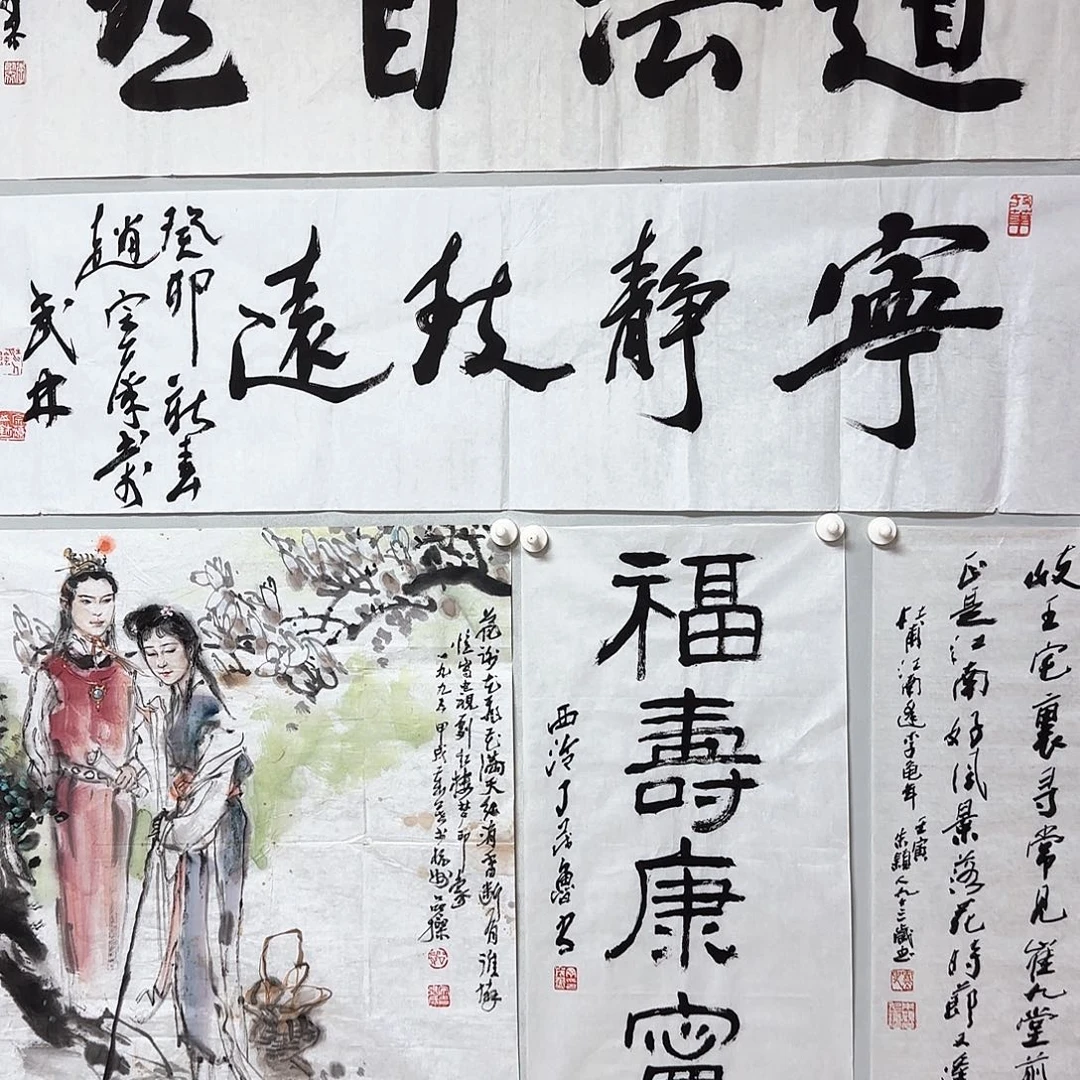 道法自然
寧靜致遠
癸卯新春
趙
武林
花謝花飛花滿天紅消香斷有誰憐
一九九四甲戌
福壽康寧
西泠丁茂魯書
岐王宅裏尋常見崔九堂前
正是江南好風景落花時節又逢
杜甫江南逢李龜年 壬寅
朱穎人九十三歲書